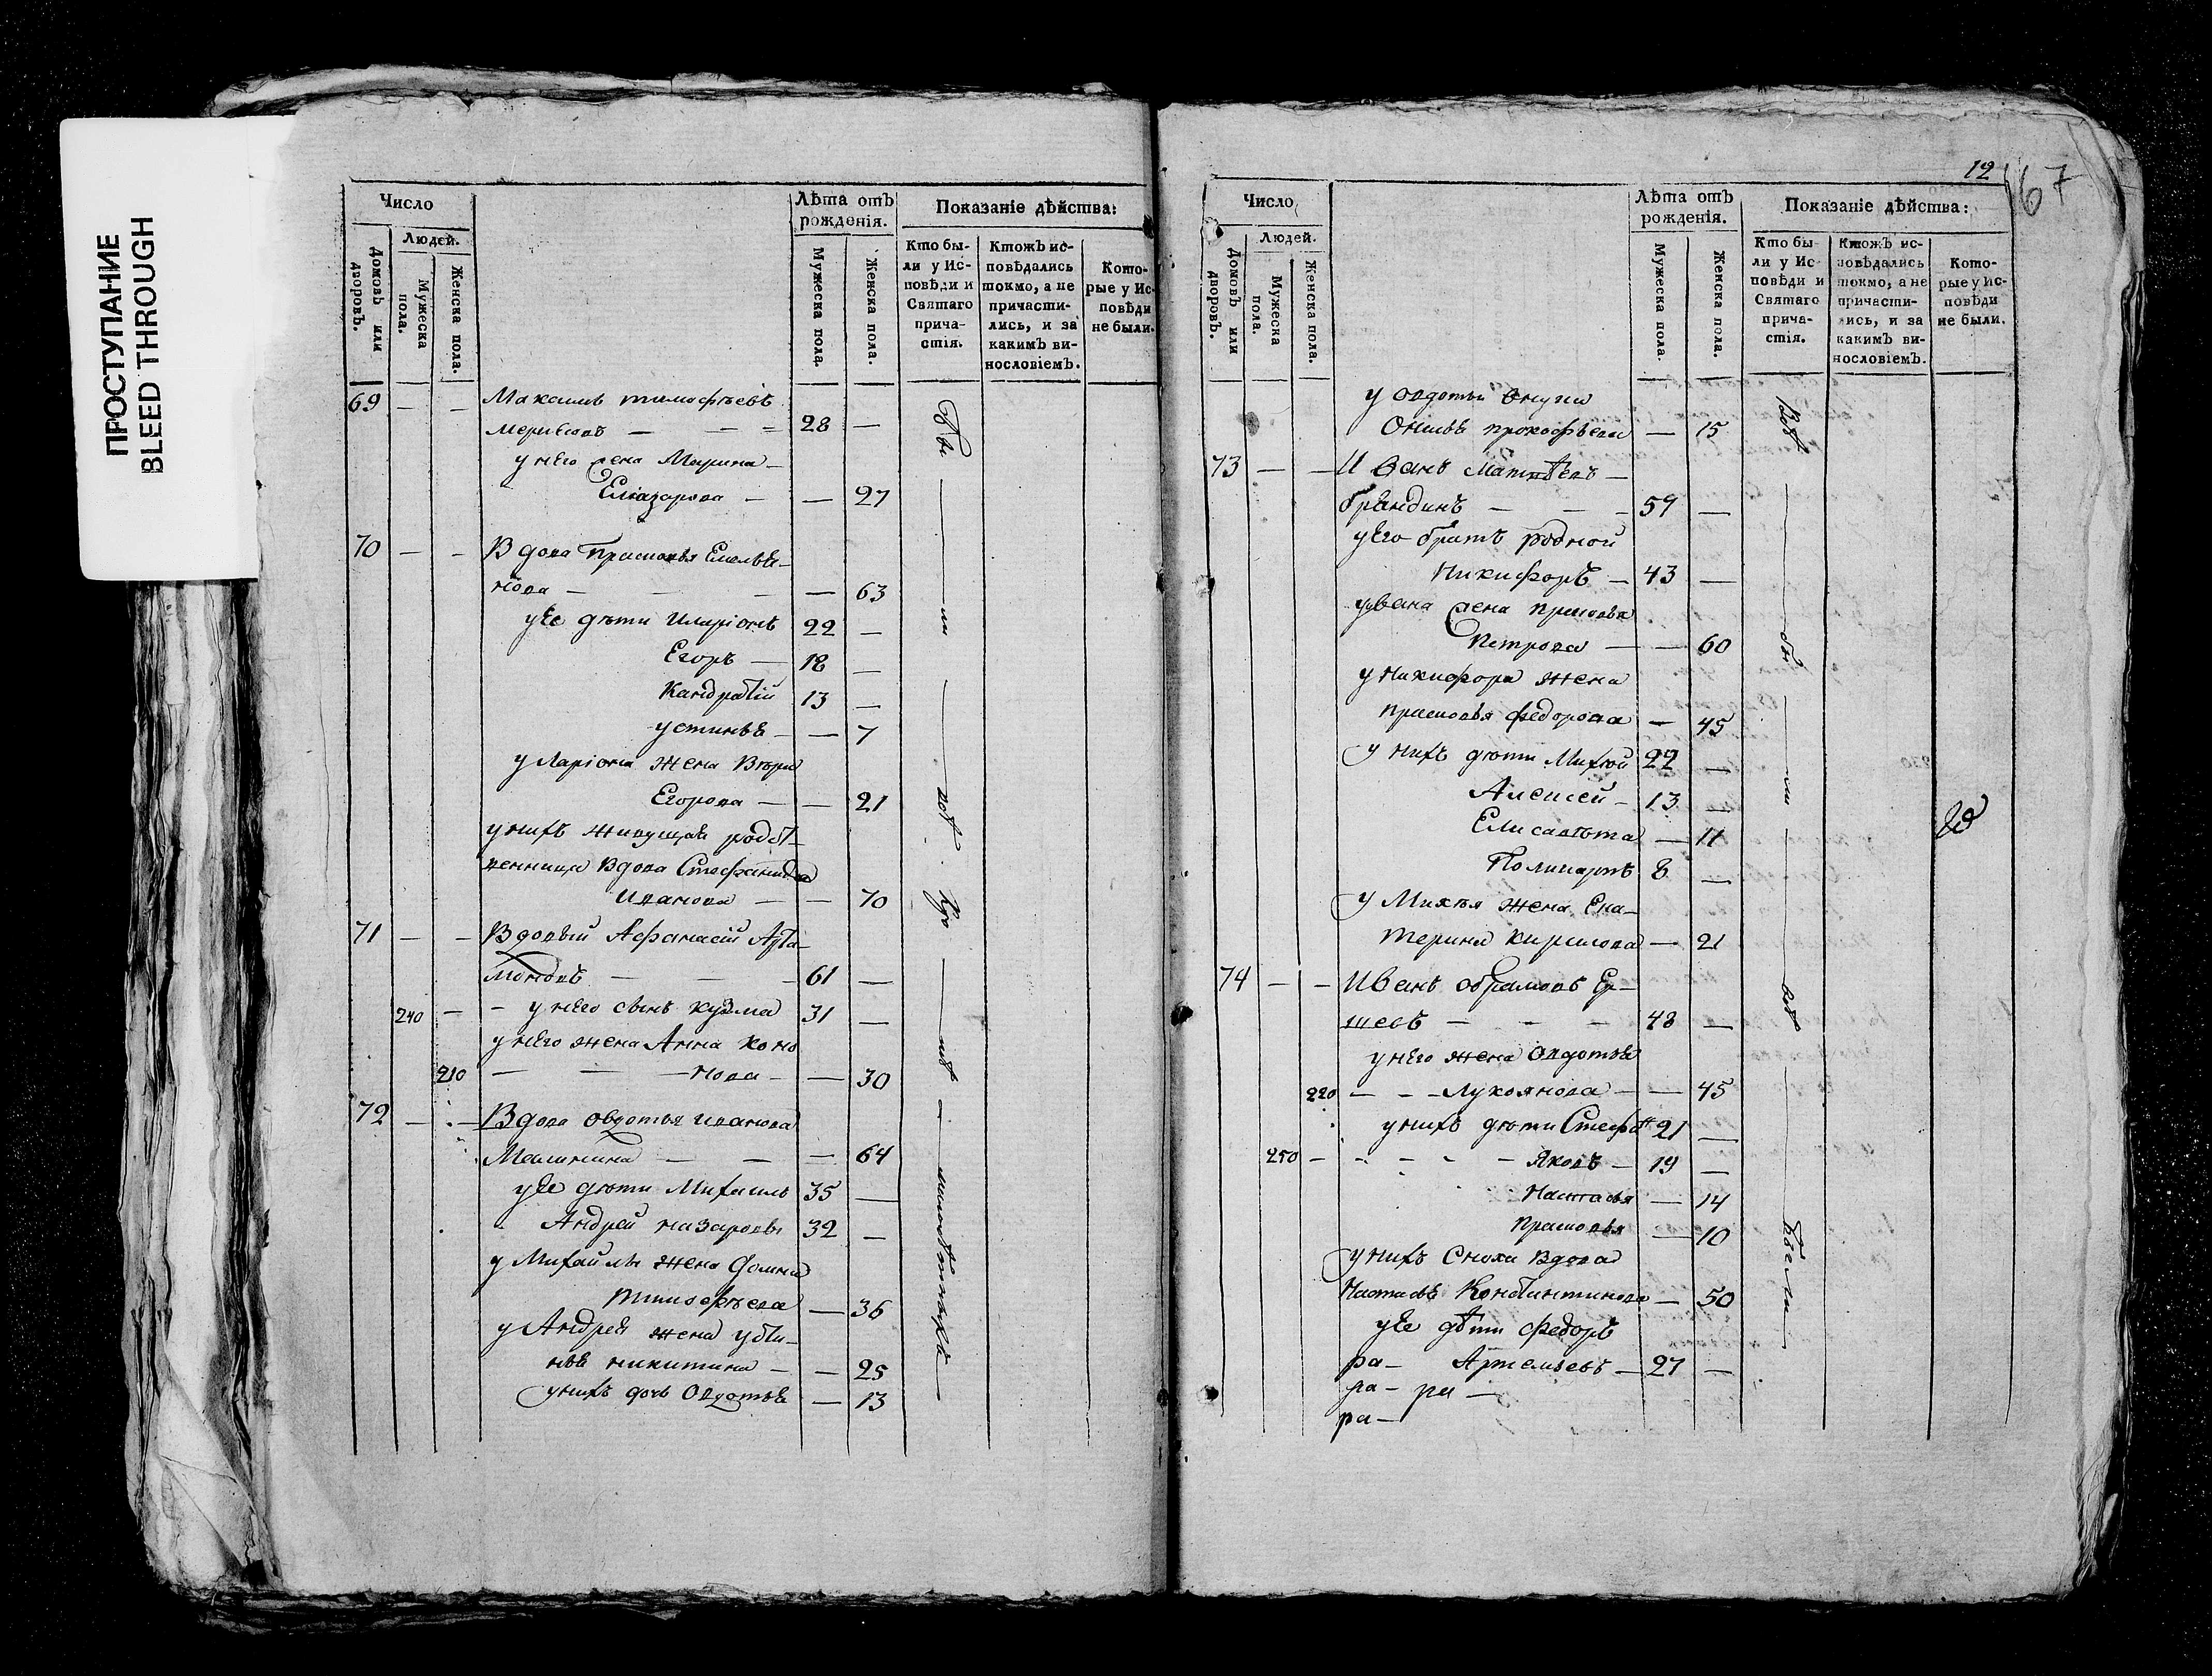 ПРОСТУПАНИЕ
BLEED THROUGH
Число
Людей.
Домовъ или дворовъ.
Мужеска пола.
Женска пола.
Лѣта отъ рожденія.
Мужеска пола.
Женска пола.
Показаніе дѣйства:
Кто бы-
ли у Ис-
повѣди и
Святаго
прича-
стія.
Ктожъ ис-
повѣдались
токмо, а не
причасти-
лись, и за
какимъ ви-
нословіемъ.
Кото-
рые у Ис-
повѣди
не были.
69 — — Максимъ тимофѣевъ
28 —
у него жена Марина —
Елиазарова — — 27
70 — — Вдова Прасковья Емелья-
нова — — 63
у Ее дѣти Иларіонъ 22 —
Егоръ — 18 —
Кандратій 13 —
устинья — — 7
у Ларіона жена Вѣра
Егорова — — 21
у нихъ живущая родст-
венница Вдова Стефанида
Иванова — — 70
71 — — Вдовый Афанасій Арта-
моновъ — 61 —
240 — — у него сынъ кузма 31 —
у него жена Анна коно
210 — — — нова — — 30
72 — — Вдова овдотья иванова
Малинина — — — 64
у Ее дѣти Михаилъ 35 —
Андрей назаровы 32 —
у Михайлы жена Домна
тимофѣева — 36
у Андрея жена усти-
нья никитина — — 25
у нихъ дочь Овдотья — 13
12
167
Число
Людей.
Домовъ или дворовъ.
Мужеска пола.
Женска пола.
Лѣта отъ рожденія.
Мужеска пола.
Женска пола.
Показаніе дѣйства:
Кто бы-
ли у Ис-
повѣди и
Святаго
прича-
стія.
Ктожъ ис-
повѣдались
токмо, а не
причасти-
лись, и за
какимъ ви-
нословіемъ.
Кото-
рые у Ис-
повѣди
не были.
у овдотьи внука
прокофьева — 15
73 — — Иванъ Матвѣевъ —
брындинъ — — — 59 —
у Его братъ родной
Никифоръ — 43 —
у Ивана жена прасковья
Петрова — — 60
у Никифора жена
прасковья федорова — 45
у нихъ дѣти Михей 22 —
Алексей — 13 —
Елисавѣта — 11
Поликарпъ 8 —
у Михѣя жена Ека-
терина кирилова — 21
74 — — Иванъ обрамовъ Ер-
шевъ — — — 48 —
у него жена овдотья
220 — — — Лукоянова — — 45
у нихъ дѣти Стефанъ 21 —
250 — — — — Яковъ — 19 —
Настасья — 14
Прасковья — 10
у нихъ Сноха Вдова
Настасья Констинтинова — 50
у Ее дѣти федоръ
ра — Артемьевъ — 27 —
ра — ра —
ра —